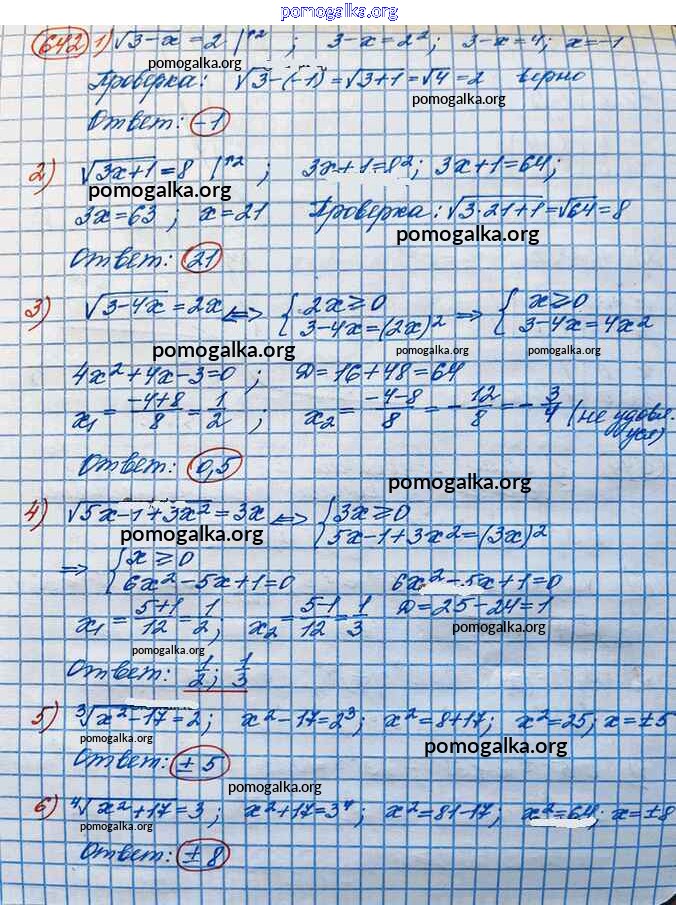 pomogalka.org
642 1) √3-x = 2 |↑2 ; 3-x=2²; 3-x=4; x=-1
Проверка: √3-(-1) = √3+1 = √4 = 2 верно
pomogalka.org
pomogalka.org
Ответ: -1
2) √3x+1 = 8 |↑2 ; 3x+1=8²; 3x+1=64;
pomogalka.org
pomogalka.org
3x=63 ; x=21 Проверка: √3·21+1 = √64 = 8
pomogalka.org
Ответ: 21
3) √3-4x = 2x ⇔ { 2x≥0 ⇒ { x≥0
3-4x=(2x)² 3-4x=4x²
pomogalka.org pomogalka.org pomogalka.org
4x²+4x-3=0 ; D=16+48=64
x₁ = (-4+8)/8 = 1/2 ; x₂ = (-4-8)/8 = -12/8 = -3/4 (не удовл.
усл)
Ответ: 0,5
pomogalka.org
4) √5x-1+3x² = 3x ⇔ { 3x≥0
5x-1+3x²=(3x)²
pomogalka.org
⇒ { x≥0
6x²-5x+1=0 6x²-5x+1=0
x₁ = (5+1)/12 = 1/2; x₂ = (5-1)/12 = 1/3 D=25-24=1
pomogalka.org
pomogalka.org
Ответ: 1/2; 1/3
5) ³√x²-17 = 2; x²-17=2³; x²=8+17; x²=25; x=±5
pomogalka.org
pomogalka.org
Ответ: ±5
pomogalka.org
6) ⁴√x²+17 = 3; x²+17=3⁴; x²=81-17; x²=64; x=±8
pomogalka.org
pomogalka.org
Ответ: ±8